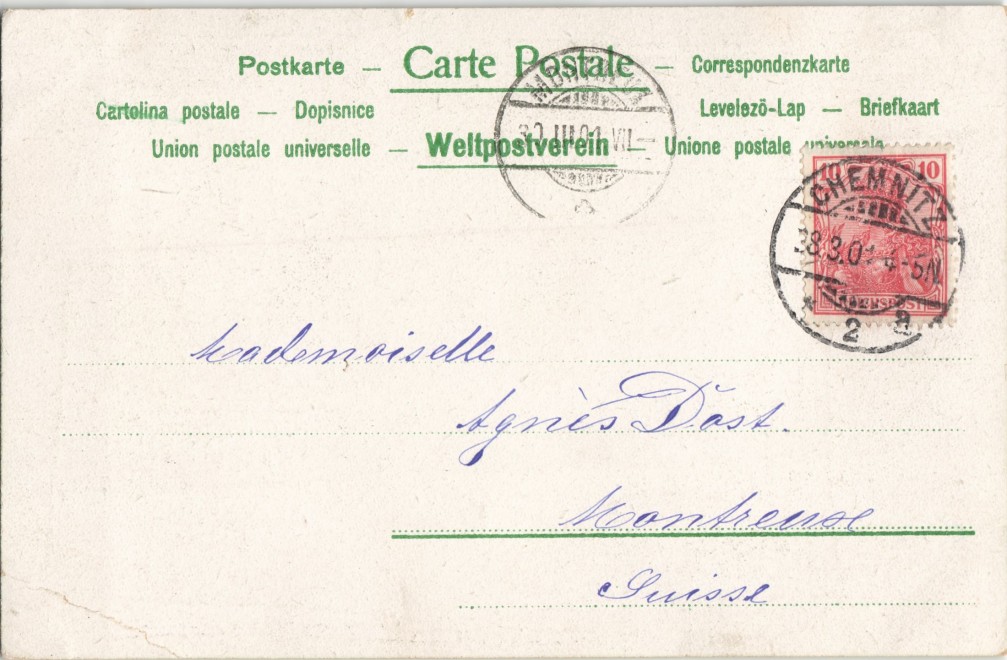 Postkarte — Carte Postale — Correspondenzkarte
Cartolina postale — Dopisnice Levelezö-Lap — Briefkaart
Union postale universelle — Weltpostverein — Unione postale universale
10 10
CHEMNITZ
28.3.01 4-5N
* 2 a
30.III.01.VII
Mademoiselle
Agnès Dost.
Montreuse
Suisse